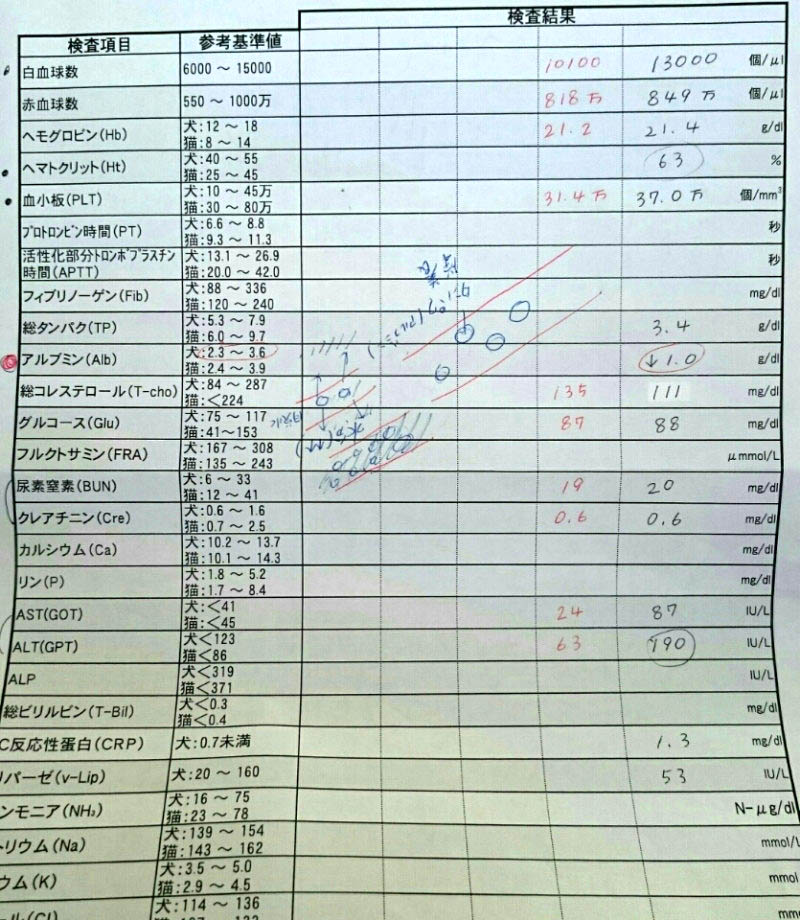 検査結果
検査項目 参考基準値
白血球数 6000 ～ 15000 10100 13000 個/μl
赤血球数 550 ～ 1000万 818万 849万 個/μl
ヘモグロビン(Hb) 犬:12 ～ 18 21.2 21.4 g/dl
猫:8 ～ 14
ヘマトクリット(Ht) 犬:40 ～ 55 63 %
猫:25 ～ 45
血小板(PLT) 犬:10 ～ 45万 31.4万 37.0万 個/mm³
猫:30 ～ 80万
プロトロンビン時間(PT) 犬:6.6 ～ 8.8 秒
猫:9.3 ～ 11.3
活性化部分トロンボプラスチン時間(APTT) 犬:13.1 ～ 26.9 秒
猫:20.0 ～ 42.0
フィブリノーゲン(Fib) 犬:88 ～ 336 mg/dl
猫:120 ～ 240
総タンパク(TP) 犬:5.3 ～ 7.9 3.4 g/dl
猫:6.0 ～ 9.7
アルブミン(Alb) 犬:2.3 ～ 3.6 ↓1.0 g/dl
猫:2.4 ～ 3.9
総コレステロール(T-cho) 犬:84 ～ 287 135 111 mg/dl
猫:<224
グルコース(Glu) 犬:75 ～ 117 87 88 mg/dl
猫:41～153
フルクトサミン(FRA) 犬:167 ～ 308 μmmol/L
猫:135 ～ 243
尿素窒素(BUN) 犬:6 ～ 33 19 20 mg/dl
猫:12 ～ 41
クレアチニン(Cre) 犬:0.6 ～ 1.6 0.6 0.6 mg/dl
猫:0.7 ～ 2.5
カルシウム(Ca) 犬:10.2 ～ 13.7 mg/dl
猫:10.1 ～ 14.3
リン(P) 犬:1.8 ～ 5.2 mg/dl
猫:1.7 ～ 8.4
AST(GOT) 犬:<41 24 87 IU/L
猫:<45
ALT(GPT) 犬<123 63 190 IU/L
猫<86
ALP 犬<319 IU/L
猫<371
総ビリルビン(T-Bil) 犬<0.3 mg/dl
猫<0.4
C反応性蛋白(CRP) 犬:0.7未満 1.3 mg/dl
リパーゼ(v-Lip) 犬:20 ～ 160 53 IU/L
ンモニア(NH₃) 犬:16 ～ 75 N-μg/dl
猫:23 ～ 78
トリウム(Na) 犬:139 ～ 154 mmol/L
猫:143 ～ 162
ウム(K) 犬:3.5 ～ 5.0 mmol
猫:2.9 ～ 4.5
ール(Cl) 犬:114 ～ 136 mm